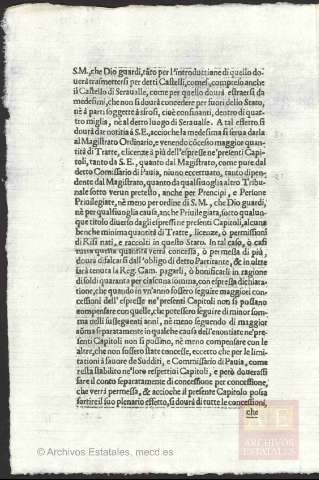 S.M., che Dio guardi, tãto per l'introduttione di quello do-
uerà trasmettersi per detti Castelli, come, compreso anche
il Castello di Seraualle, come per quello dourà estraersi da
medesimi, che non si dourà concedere per fuori dello Stato,
nè à parti soggette à sfrosi, cioè confinanti, dentro di quat-
tro miglia, nè al detto luogo di Serraualle. A tal effetto si
dourà dar notitia à S.E., accioche la medesima si serua darla
al Magistrato Ordinario, e venendo cõcesso maggior quan-
tità di Tratte, e licenze à più dell'espresse ne'presenti Capi-
toli, tanto da S.E., quanto dal Magistrato, come pure dal
detto Comissario di Pauia, niuno eccettuato, tanto dipen-
dente dal Magistrato, quanto da qualsiuoglia altro Tribu-
nale sotto verun pretesto, anche per Prencipi, e Persone
Priuilegiate, nè meno per ordine di S.M., che Dio guardi,
nè per qualsiuoglia causa, anche Priuilegiata, sotto qualun-
que titolo diuerso dagli espressi ne presenti Capitoli, alcuna
benche minima quantità di Tratte, licenze, ò permissioni
di Risi nati, e raccolti in questo Stato. In tal caso, ò casi
tutta quella quantità verrà concessa, ò permessa di più,
dourà difalcarsi dall'obligo di detto Partitante, & in oltre
sarà tenuta la Reg. Cam. pagarli, ò bonificarli in ragione
di soldi quaranta per ciascuna somma, con espressa dichiara-
tione, che quando in vn'anno fossero seguite maggiori con-
cessioni dell'espresse ne'presenti Capitoli non si possano
compensare con quelle, che potessero seguire di minor som-
ma nelli susseguenti anni, nè meno seguendo di maggior
sũma separatamente in qualche causa dell'enontiate ne'pre-
senti Capitoli non si possano, nè meno compensare con le
altre, che non fossero state concesse, eccetto che per le limi-
tationi à fauore de Sudditi, e Commissario di Pauia, come
resta stabilito ne'loro respettiui Capitoli, e però douerassi
fare il conto separatamente di concessione per concessione,
che verrà permessa, & accioche il presente Capitolo possa
sortire il suo plenario effetto, si dourà di tutte le concessioni,
che
ARCHIVOS
ESTATALES
© Archivos Estatales, mecd.es